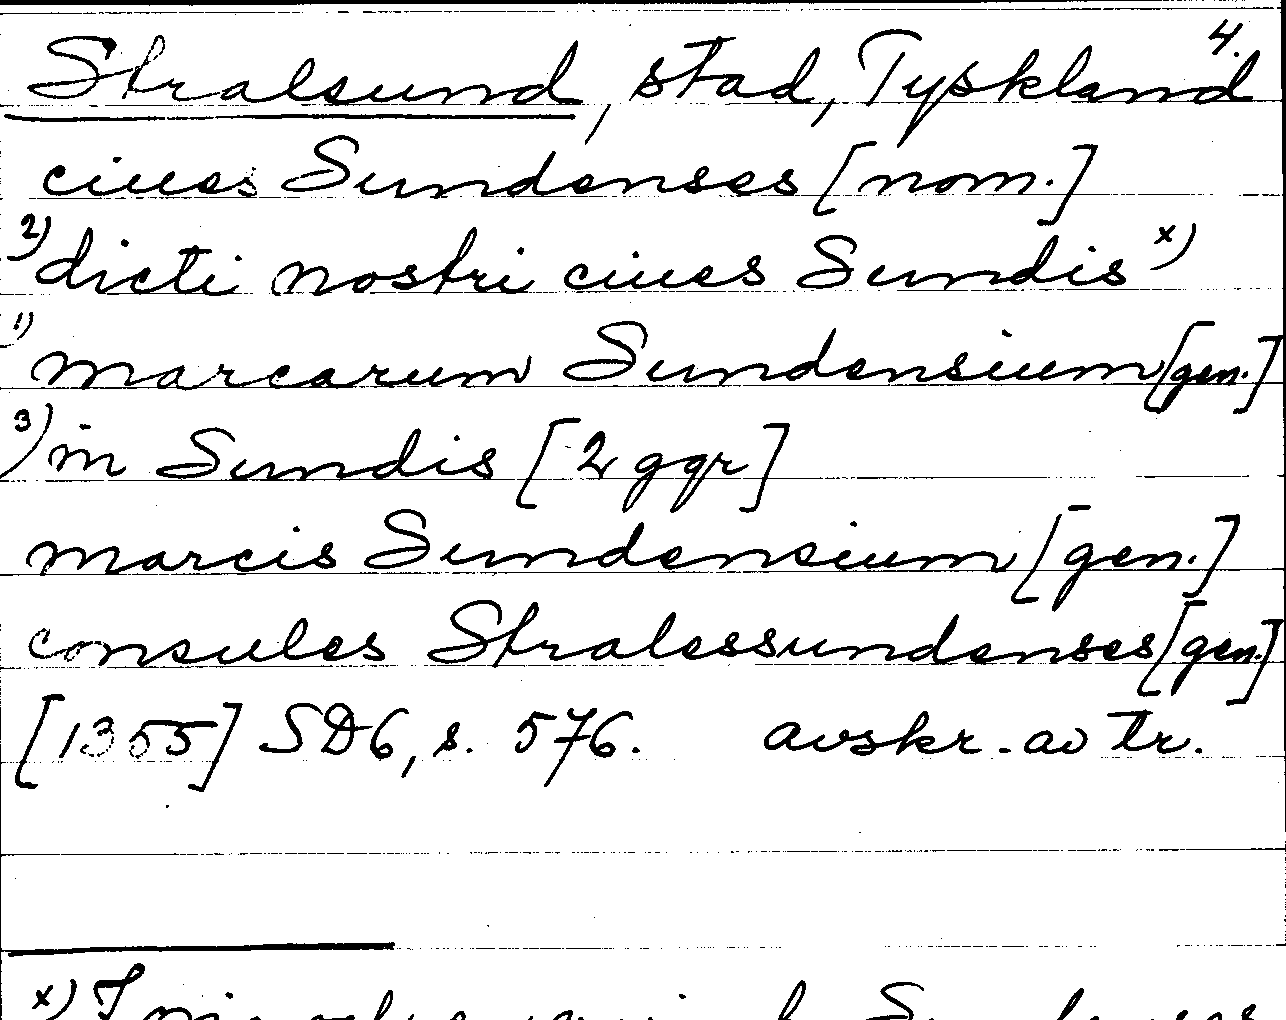 4.
Stralsund, stad, Tyskland
ciues Sundenses [nom.]
2) dicti nostri ciues Sundis x)
1) marcarum Sundensium [gen.]
3) in Sundis [2 ggr]
marcis Sundensium [gen.]
consules Stralessundenses [gen.]
[1355] SD6, s. 576. avskr. av tr.
x) I